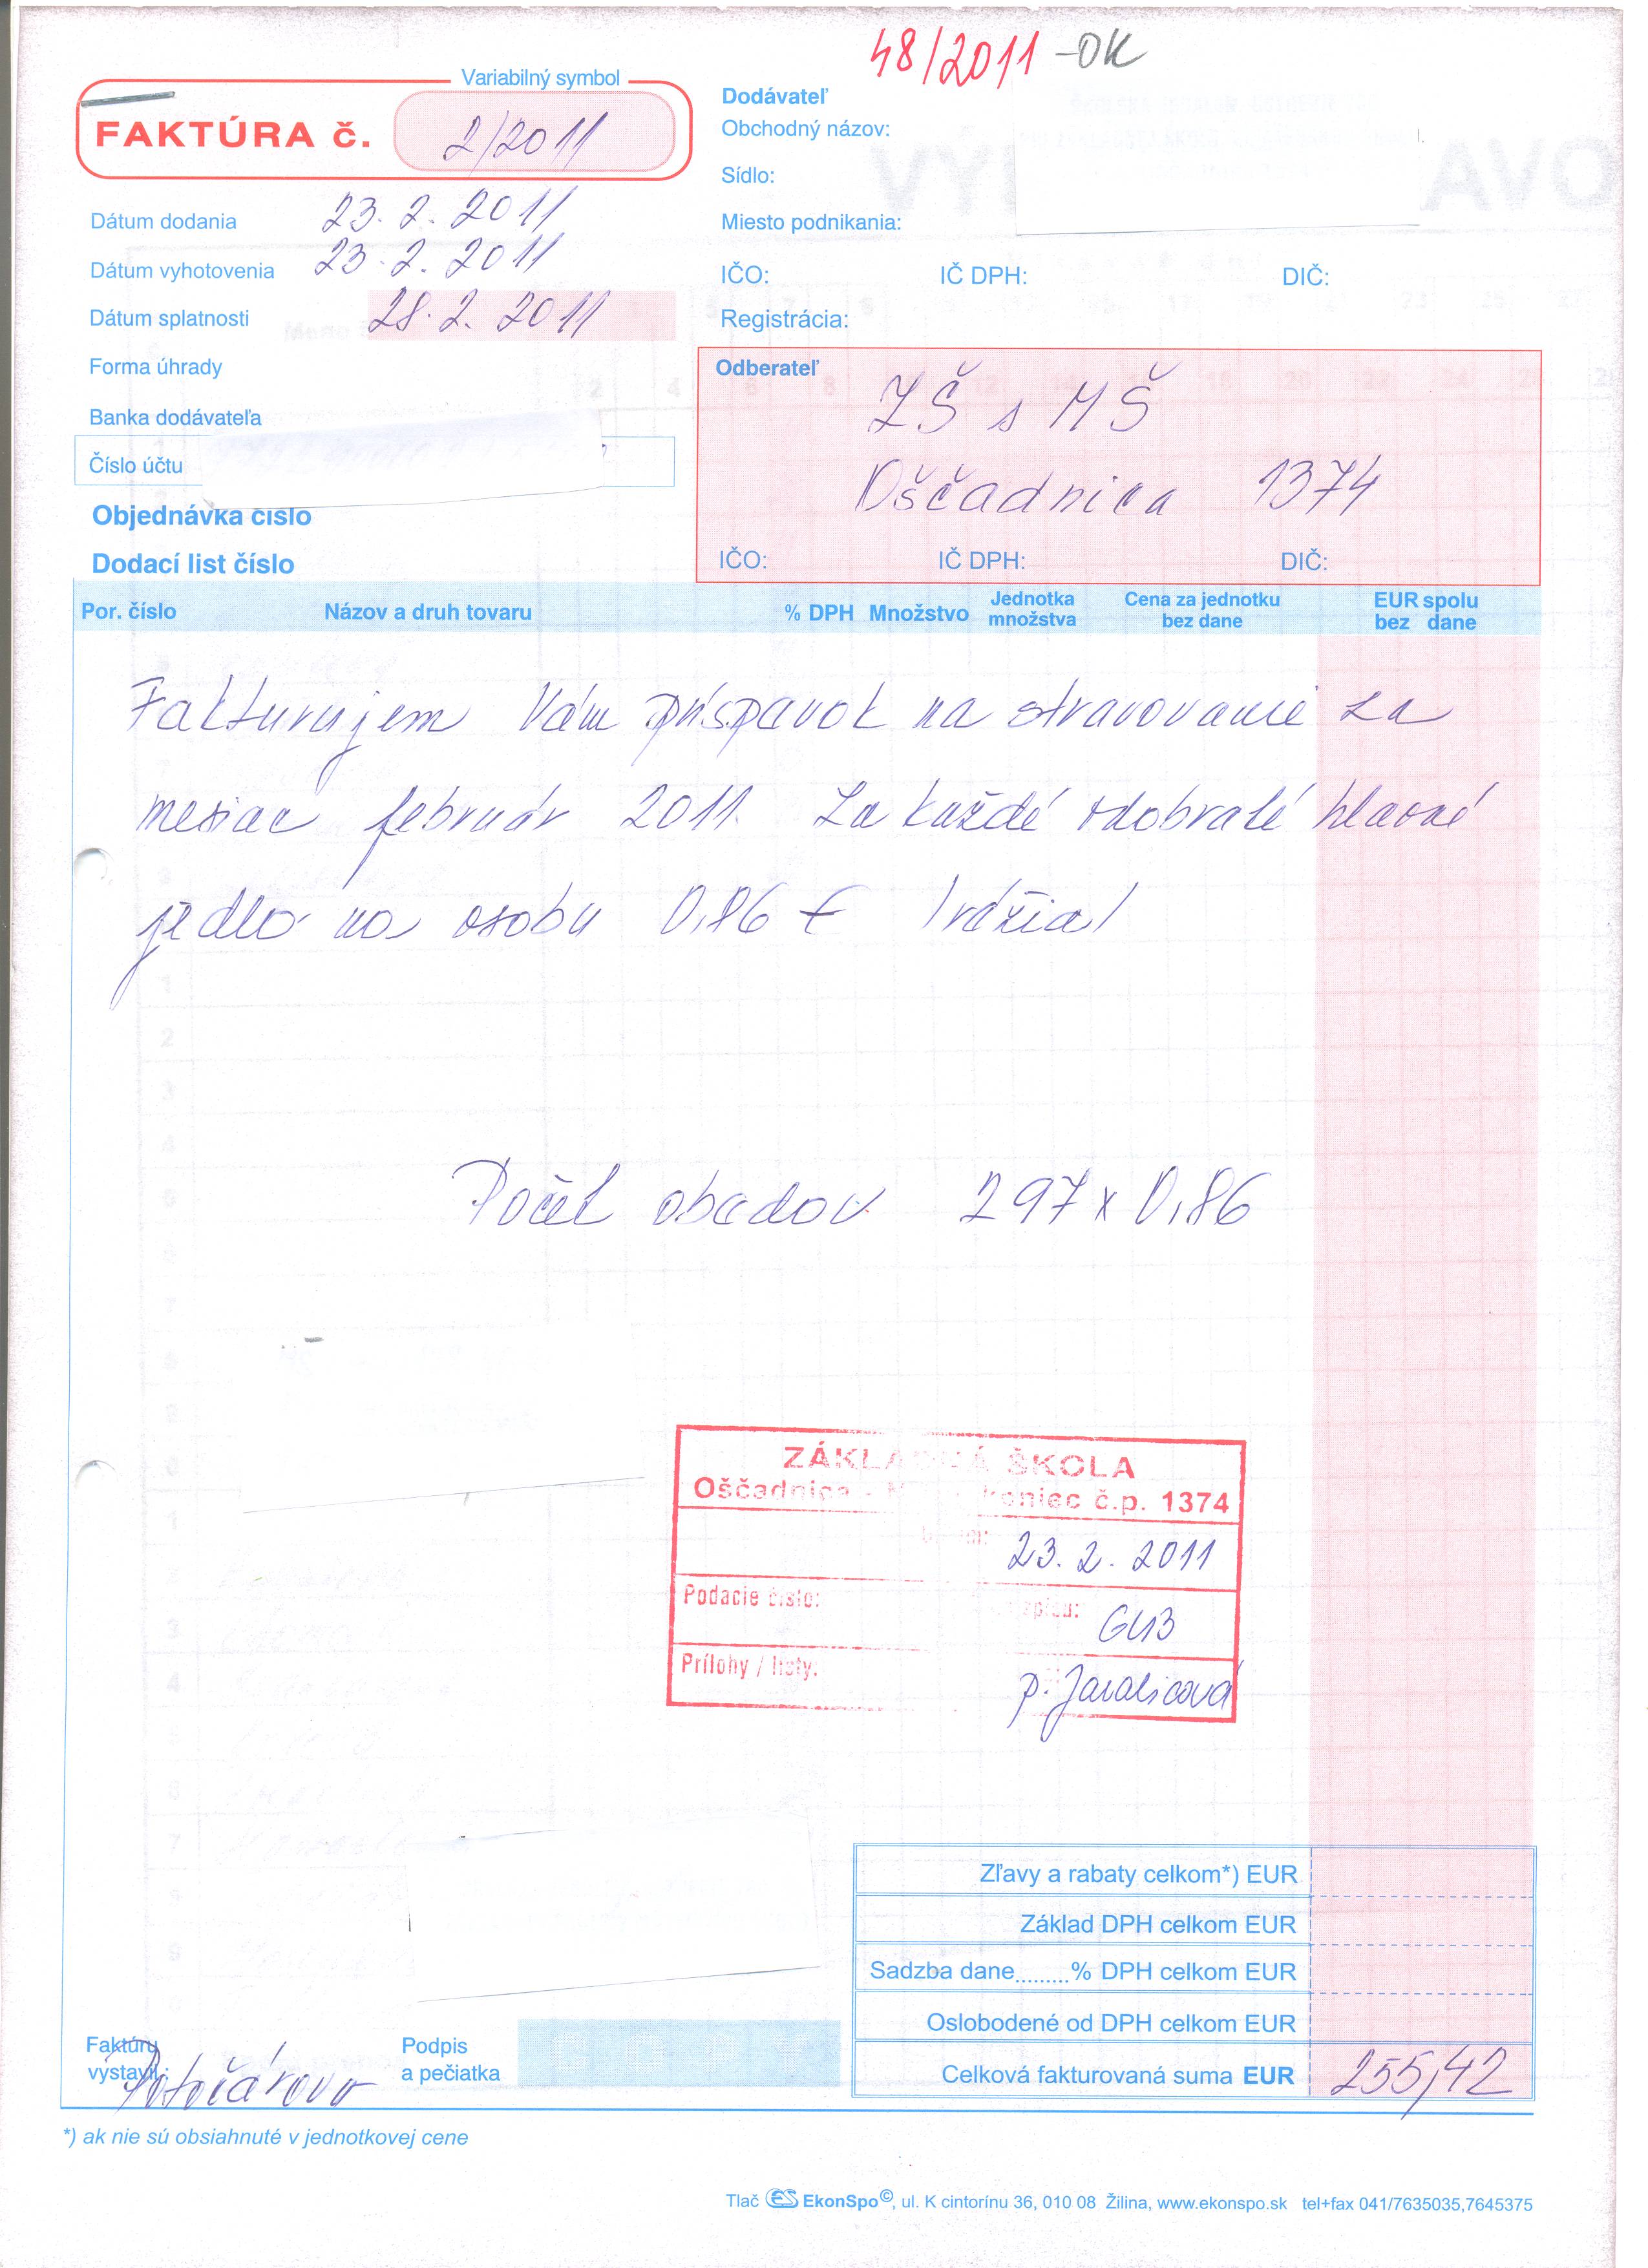 48/2011 -OK
Variabilný symbol
FAKTÚRA č. 2/2011
Dátum dodania 23. 2. 2011
Dátum vyhotovenia 23. 2. 2011
Dátum splatnosti 28. 2. 2011
Forma úhrady
Banka dodávateľa
Číslo účtu
Objednávka číslo
Dodací list číslo
Dodávateľ
Obchodný názov:
Sídlo:
Miesto podnikania:
IČO: IČ DPH: DIČ:
Registrácia:
Odberateľ
ZŠ s MŠ
Oščadnica 1374
IČO: IČ DPH: DIČ:
Por. číslo Názov a druh tovaru % DPH Množstvo Jednotka množstva Cena za jednotku bez dane EUR spolu bez dane
Fakturujem Vám príspavok na stravovanie za
mesiac február 2011. Za každé odobraté hlavné
jedlo na osobu 0,86 € /réžia/
Počet obedov 297 x 0,86
ZÁKLADNÁ ŠKOLA
Oščadnica - koniec č.p. 1374
23. 2. 2011
Podacie číslo:
Prílohy / listy:
Zľavy a rabaty celkom*) EUR
Základ DPH celkom EUR
Sadzba dane.........% DPH celkom EUR
Oslobodené od DPH celkom EUR
Celková fakturovaná suma EUR 255,42
Faktúru
vystavil:
Podpis
a pečiatka
*) ak nie sú obsiahnuté v jednotkovej cene
Tlač ES EkonSpo©, ul. K cintorínu 36, 010 08 Žilina, www.ekonspo.sk tel+fax 041/7635035,7645375